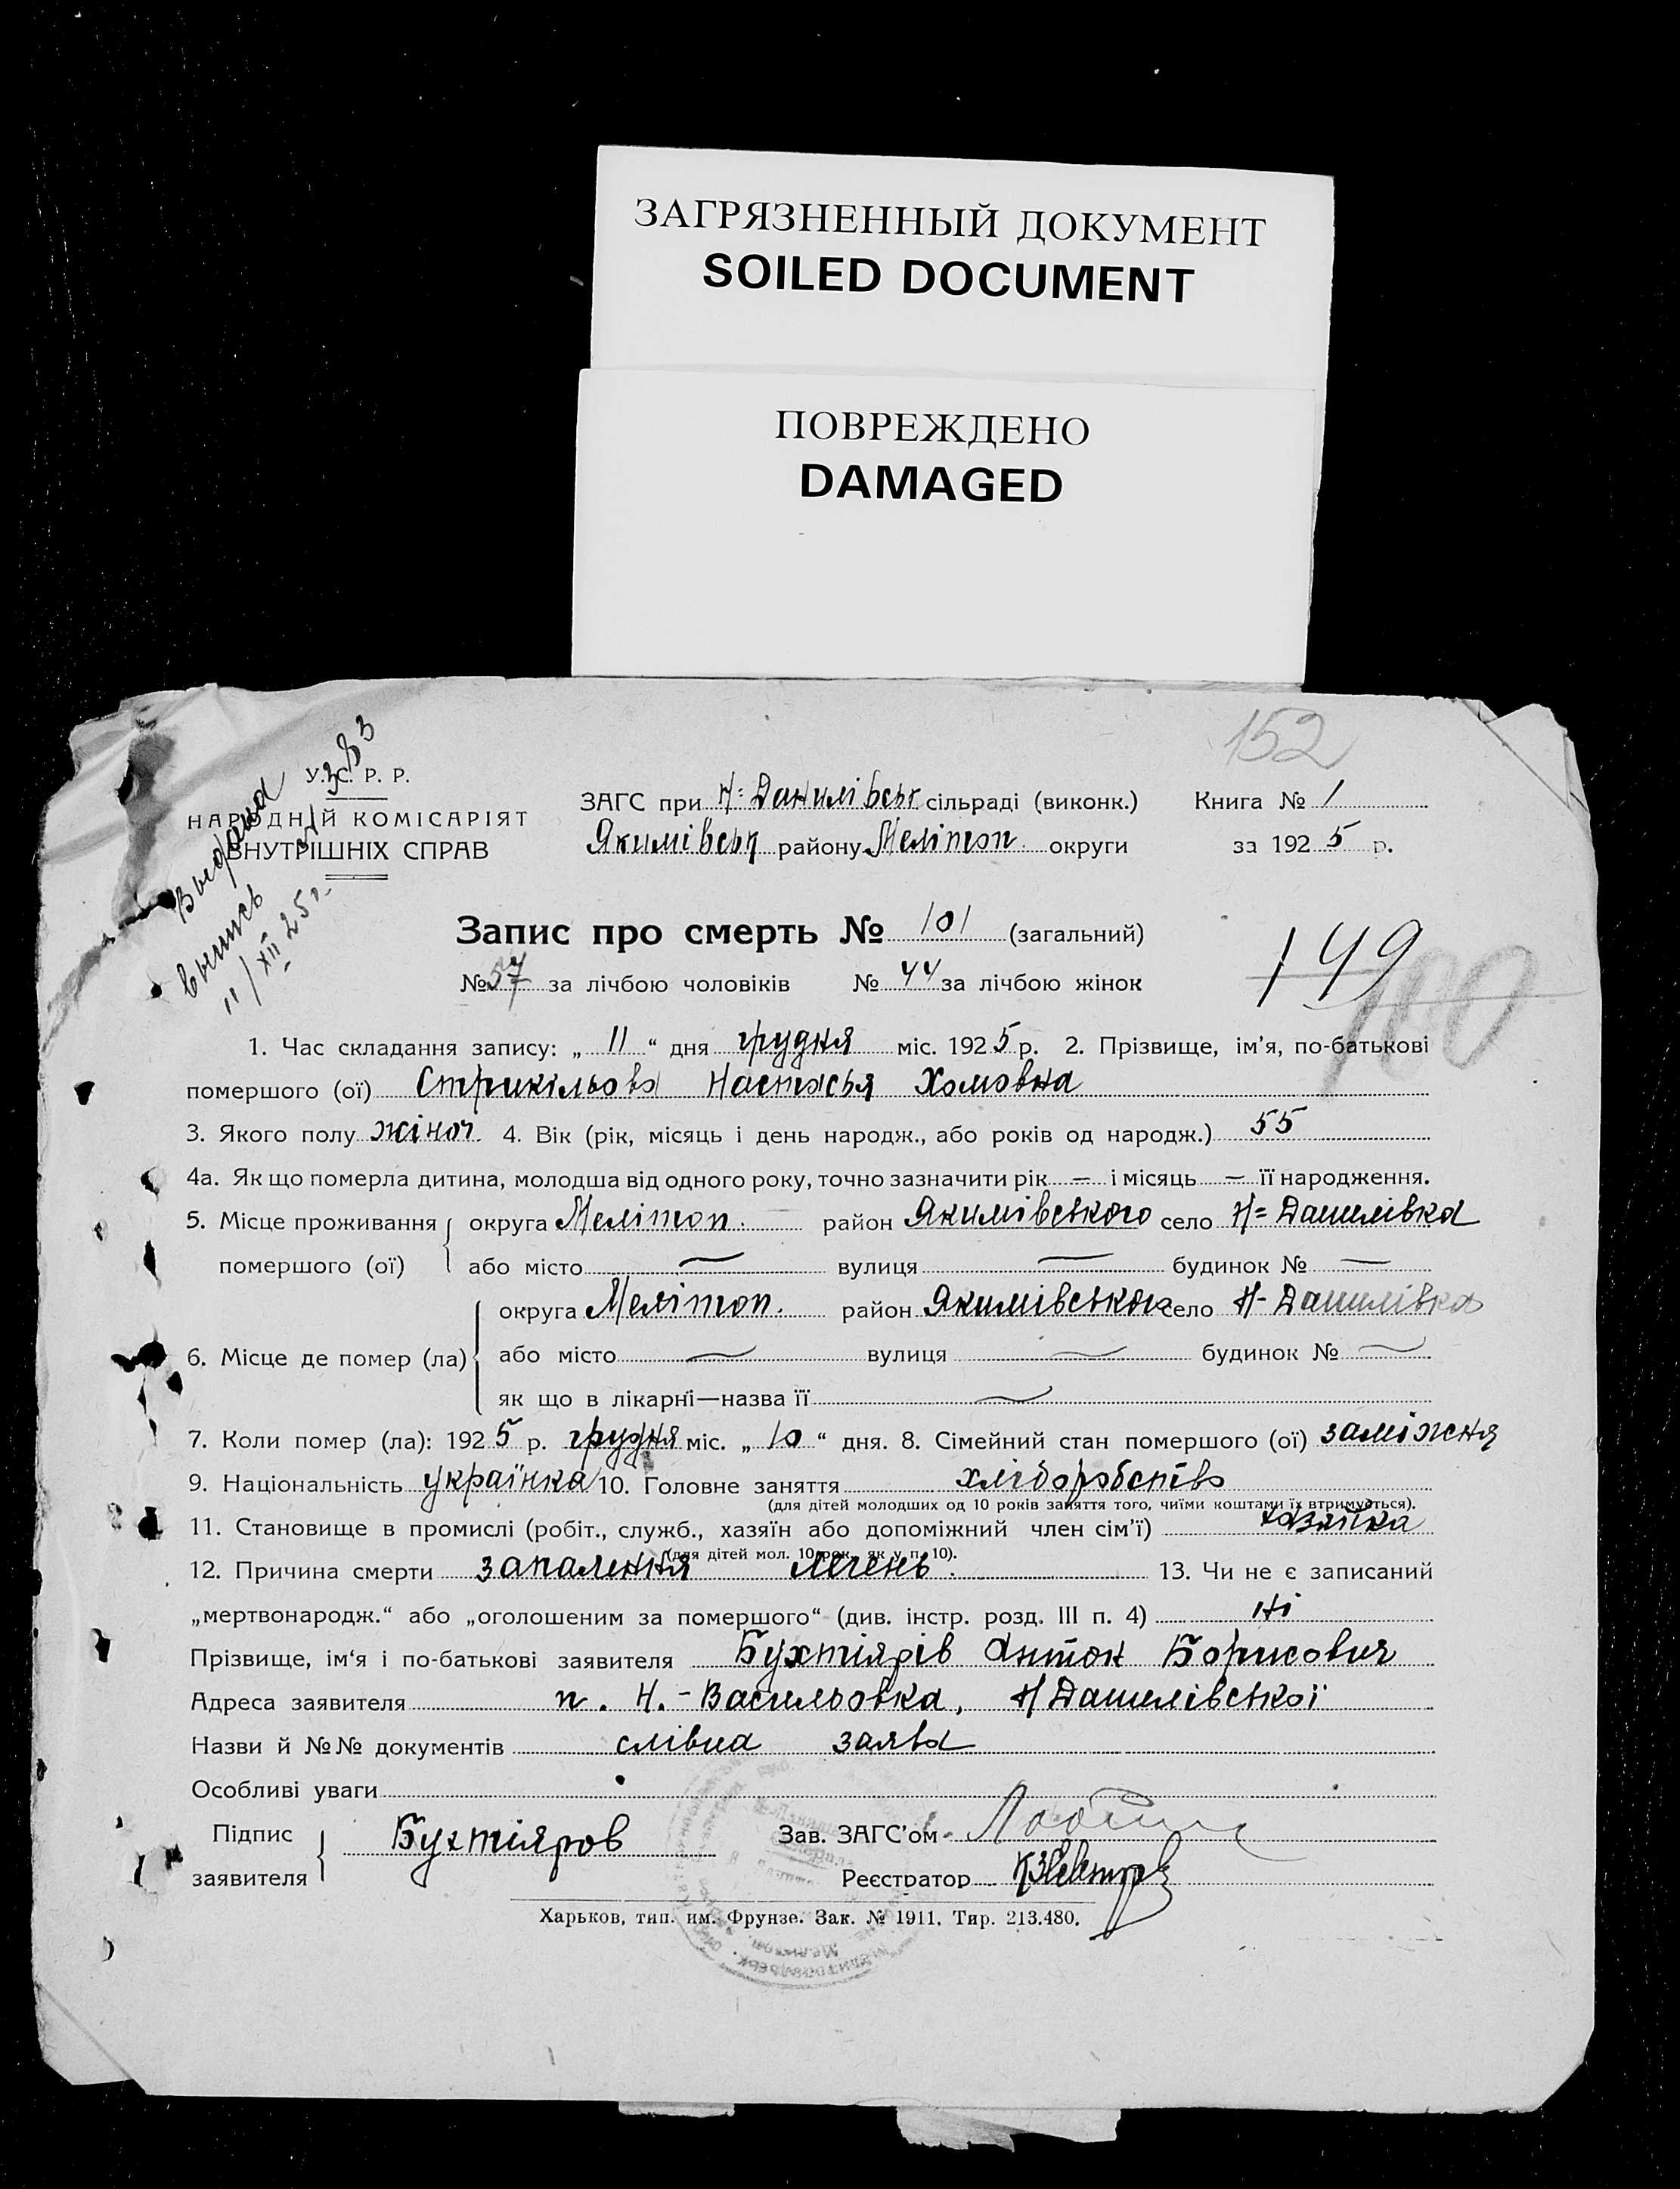 ЗАГРЯЗНЕННЫЙ ДОКУМЕНТ
SOILED DOCUMENT
ПОВРЕЖДЕНО
DAMAGED
152
Выдана
выпись
11/XII 25 г.
У. С. Р. Р.
НАРОДНІЙ КОМІСАРІЯТ
ВНУТРІШНІХ СПРАВ
ЗАГС при Н=Данилівськ сільраді (виконк.) Книга № 1
Якимівськ району Меліtoп. округи за 1925 р.
Запис про смерть № 101 (загальний)
149
100
№ 57 за лічбою чоловіків № 44 за лічбою жінок
1. Час складання запису: „ 11 “ дня грудня міс. 1925 р. 2. Прізвище, ім’я, по-батькові
помершого (ої) Стрикільова Настасья Хомовна
3. Якого полу жіноч 4. Вік (рік, місяць і день народж., або років од народж.) 55
4а. Як що померла дитина, молодша від одного року, точно зазначити рік — і місяць — її народження.
5. Місце проживання округа Мелітоп. район Якимівського село Н=Данилівка
помершого (ої) або місто — вулиця — будинок № —
округа Мелітоп. район Якимівського село Н-Данилівка
6. Місце де помер (ла) або місто — вулиця — будинок № —
як що в лікарні—назва її —
7. Коли помер (ла): 1925 р. грудня міс. „ 10 “ дня. 8. Сімейний стан помершого (ої) заміжня
9. Національність українка 10. Головне заняття хліборобство
(для дітей молодших од 10 років заняття того, чиїми коштами їх втримується).
11. Становище в промислі (робіт., служб., хазяїн або допоміжний член сім’ї) хазяйка
(для дітей мол. 10 рок. як у п. 10).
12. Причина смерти запалення легень. 13. Чи не є записаний
„мертвонародж.“ або „оголошеним за помершого“ (див. інстр. розд. III п. 4) ні
Прізвище, ім‘я і по-батькові заявителя Бухтіярів Антон Борисович
Адреса заявителя п. Н.-Васильовка, Н Данилівської
Назви й №№ документів слівна заява
Особливі уваги
Підпис
заявителя Бухтіяров
Зав. ЗАГС’ом
Реєстратор
Харьков, тип. им. Фрунзе. Зак. № 1911. Тир. 213.480.